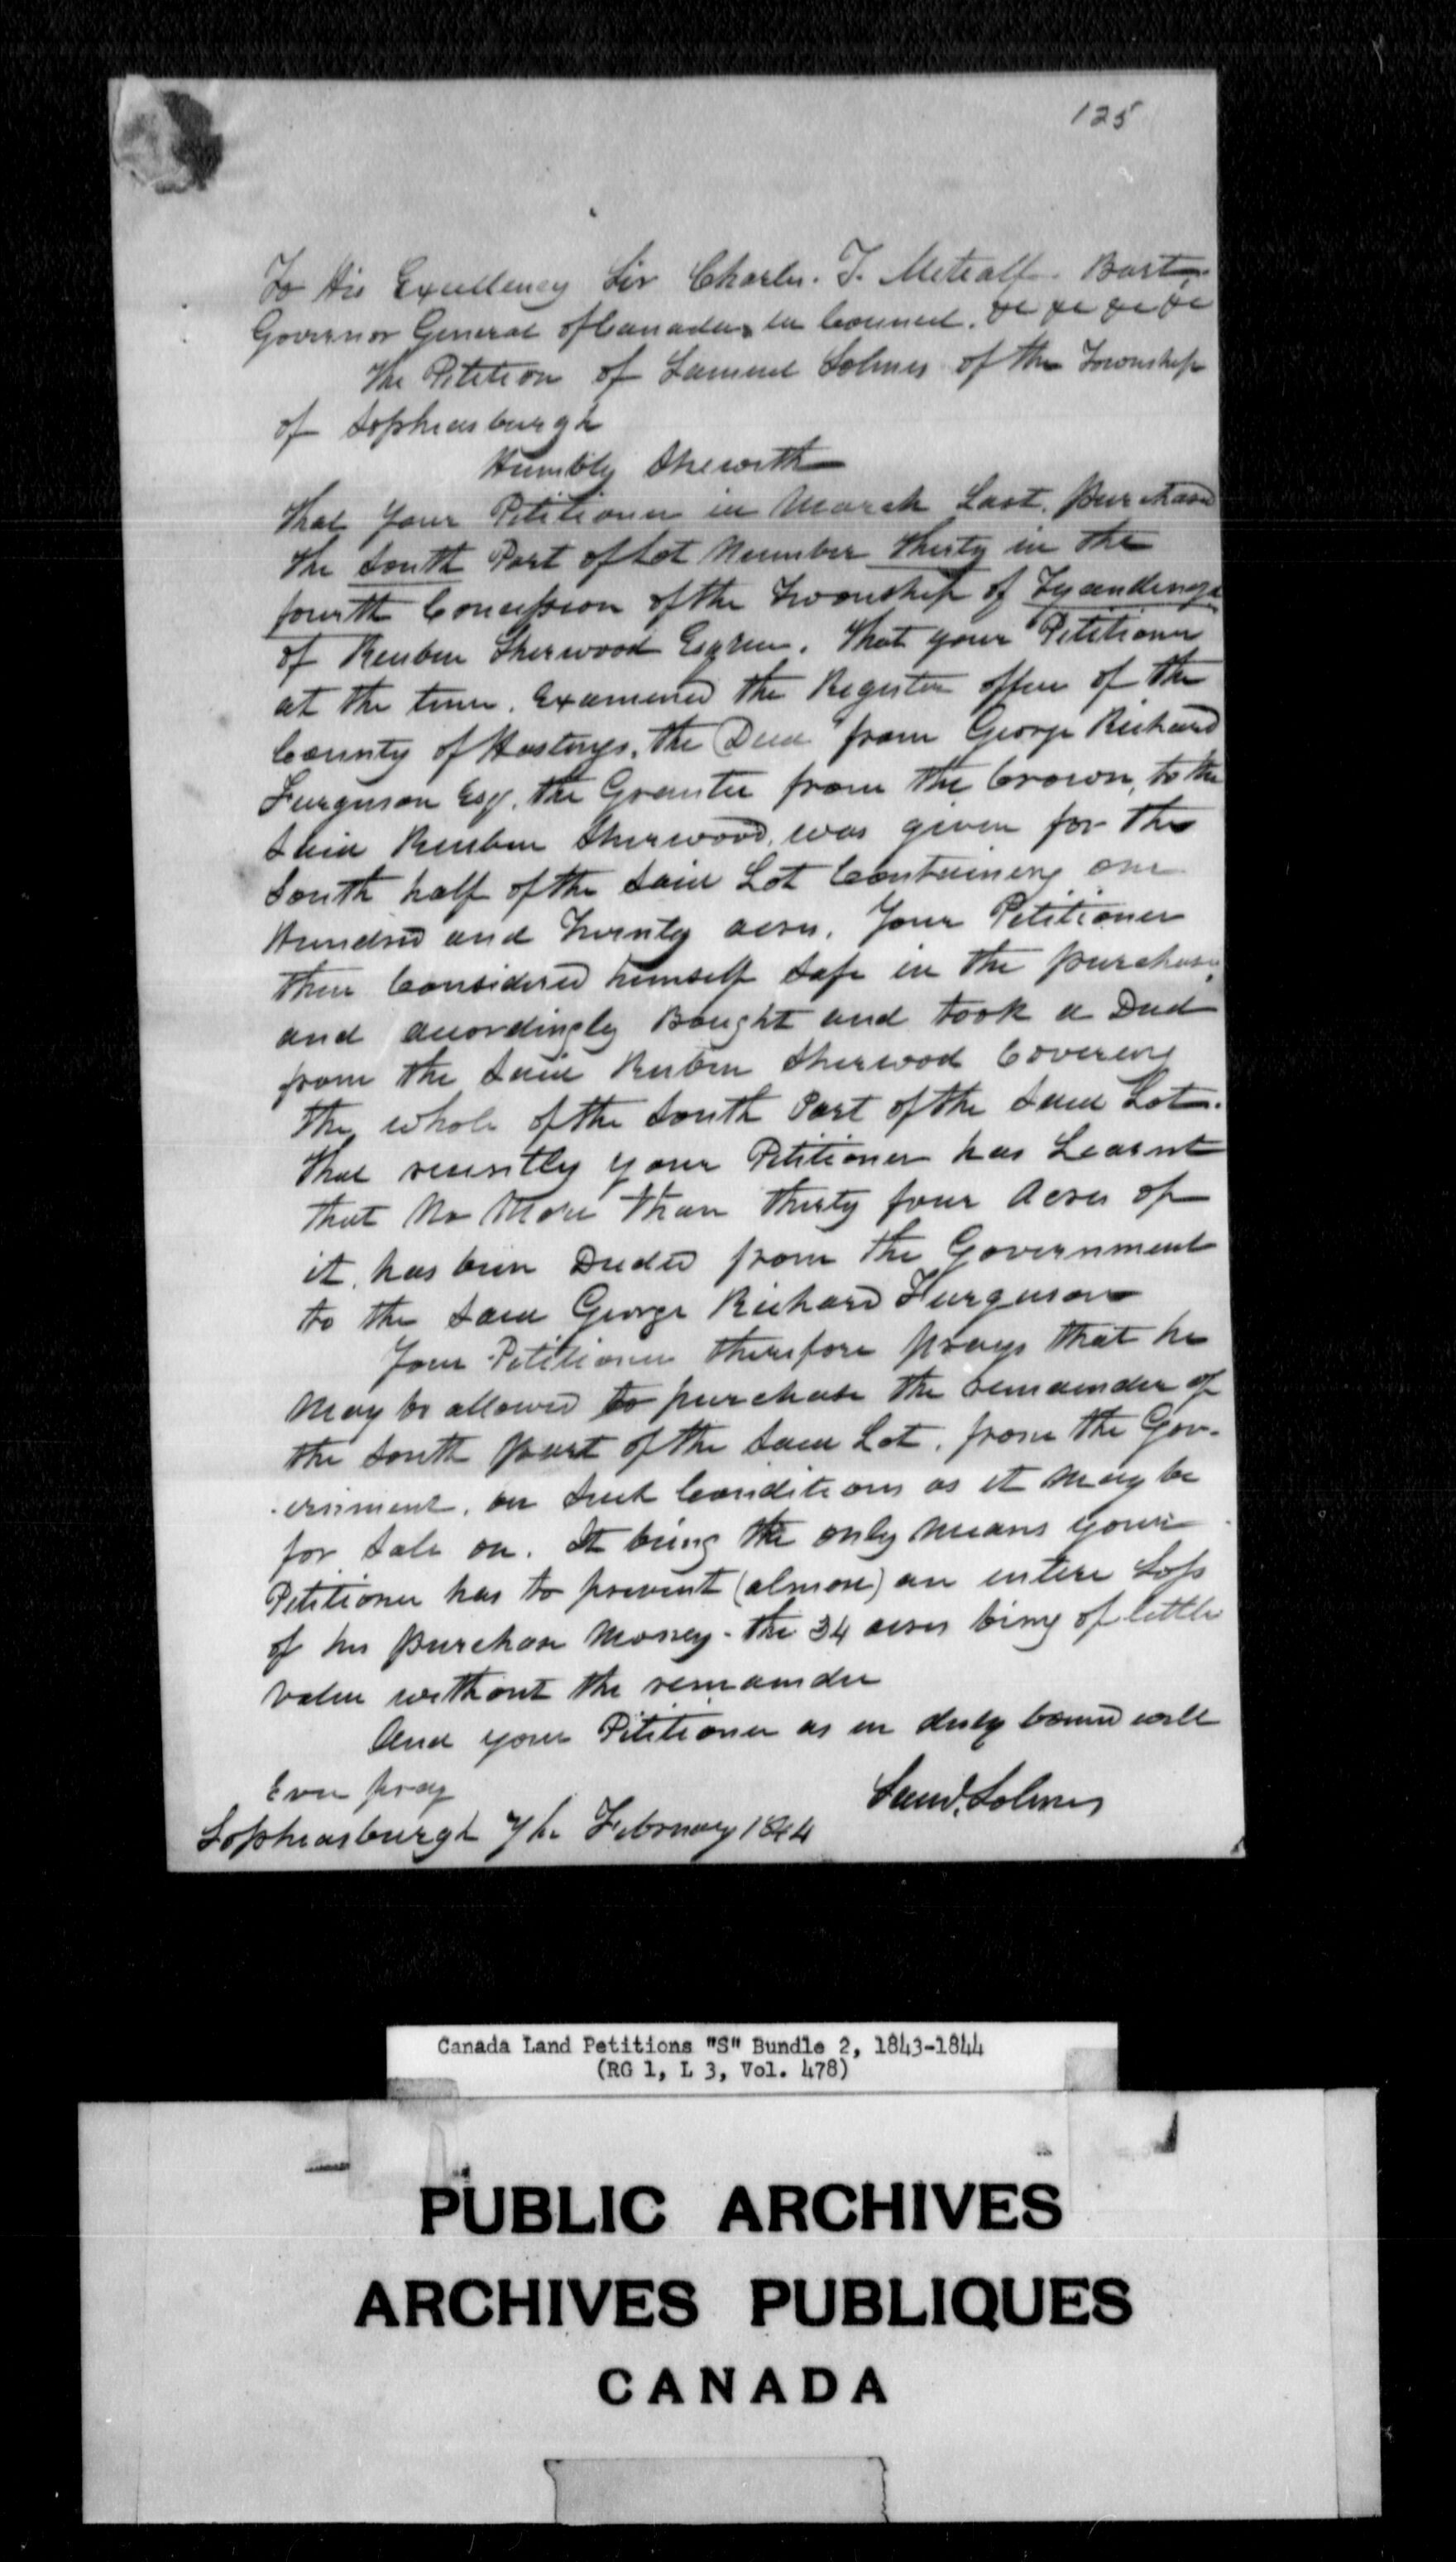 125
To His Excellency Sir Charles. T. Metcalf. Bart.
Governor General of Canada in Council. &c &c &c &c
The Petition of Samuel Solmes of the Township
of Sophiasburgh
Humbly Sheweth
That Your Petitioner in March Last, purchased
the South Part of Lot Number Thirty in the
fourth Concession of the Township of Tyendinaga
of Reuben Sherwood Esqr. That your Petitioner
at the time, Examined the Register office of the
County of Hastings, the Deed from George Richard
Furguson Esq. the Grantee from the Crown, to the
Said Reuben Sherwood, was given for the
South half of the Said Lot Containing one
Hundred and Twenty acres, Your Petitioner
then Considered himself Safe in the purchase,
and accordingly Bought and took a Deed
from the Said Reuben Sherwood Covering
the whole of the South Part of the Said Lot.
That recently your Petitioner has Learnt
that No More than thirty four Acres of
it, has been Deeded from the Government
to the Said George Richard Furguson
Your Petitioner therefore prays that he
May be allowed to purchase the remainder of
the South part of the Said Lot, from the Gov-
-ernment, on Such Conditions as it May be
for Sale on. It being the only Means your
Petitioner has to prevent (almost) an entire Loss
of his purchase Money - the 34 acres being of little
value without the remainder
And your Petitioner as in duty bound will
Ever pray
Saml. Solmes
Sophiasburgh 7th February 1844
Canada Land Petitions "S" Bundle 2, 1843-1844
(RG 1, L 3, Vol. 478)
PUBLIC ARCHIVES
ARCHIVES PUBLIQUES
CANADA